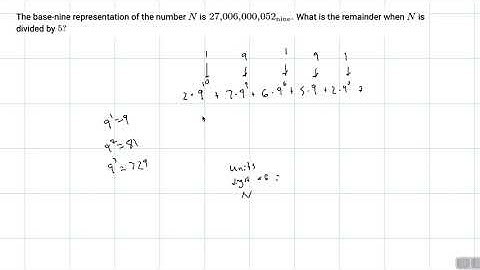 The base-nine representation of the number N is 27,006,000,052nine. What is the remainder when N is
divided by 5?
1 9 1 9 1
2·9^10 + 7·9^9 + 6·9^6 + 5·9 + 2·9^0 =
9^1=9
9^2=81
9^3=729
units
digit of =
N